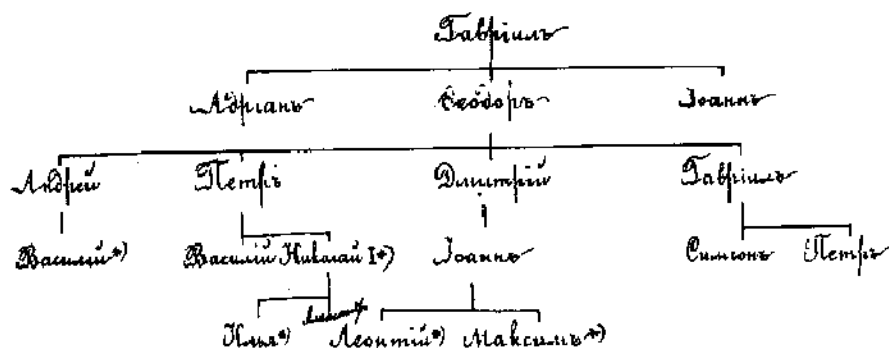 Гавріилъ
Адріанъ Ѳеодоръ Іоаннъ
Андрей Петръ Дмитрій Гавріилъ
Василій*) Василій Николай I*) Іоаннъ Симеонъ Петръ
Илья*) Леонтій*) Максимъ*)